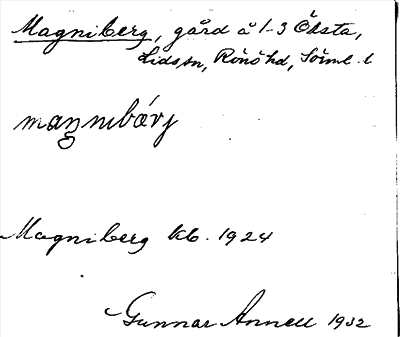 Magniberg, gård å 1-3 Öksta,
Lids sn, Rönö hd, Söml. l
maŋnıbárj
Magniberg kb. 1924
Gunnar Annell 1932